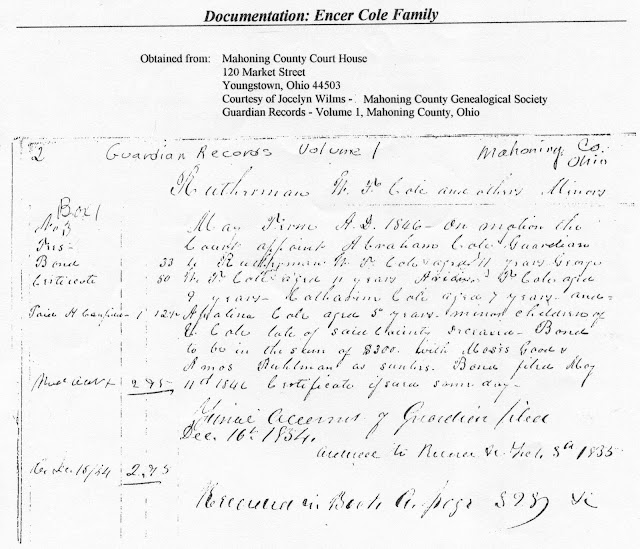 Documentation: Encer Cole Family
Obtained from: Mahoning County Court House
120 Market Street
Youngstown, Ohio 44503
Courtesy of Jocelyn Wilms - Mahoning County Genealogical Society
Guardian Records - Volume 1, Mahoning County, Ohio
2 Guardian Records Volume 1 Mahoning Co. Ohio
W. F. Cole and others Minors
Box 1
No 3 May Term A.D. 1846 - On motion the
Court appoint Abraham Cole Guardian
Bond 33 W. F. Cole aged 11 years George
Certificate 50 W. F. Cole aged 11 years F. Cole aged
9 years - Catharine Cole aged 7 years and
1 12½ Cole aged 5 years minor children of
E Cole late of said County deceased - Bond
to be in the sum of $300. with Moses Good &
Amos Ruhlman as sureties. Bond filed May
2.95 11th 1846 Certificate issued same day -
Final Account of Guardian filed
Dec. 16th 1854.
to &c. Feb. 5th 1855
2.95
Recorded in Book A. page &c